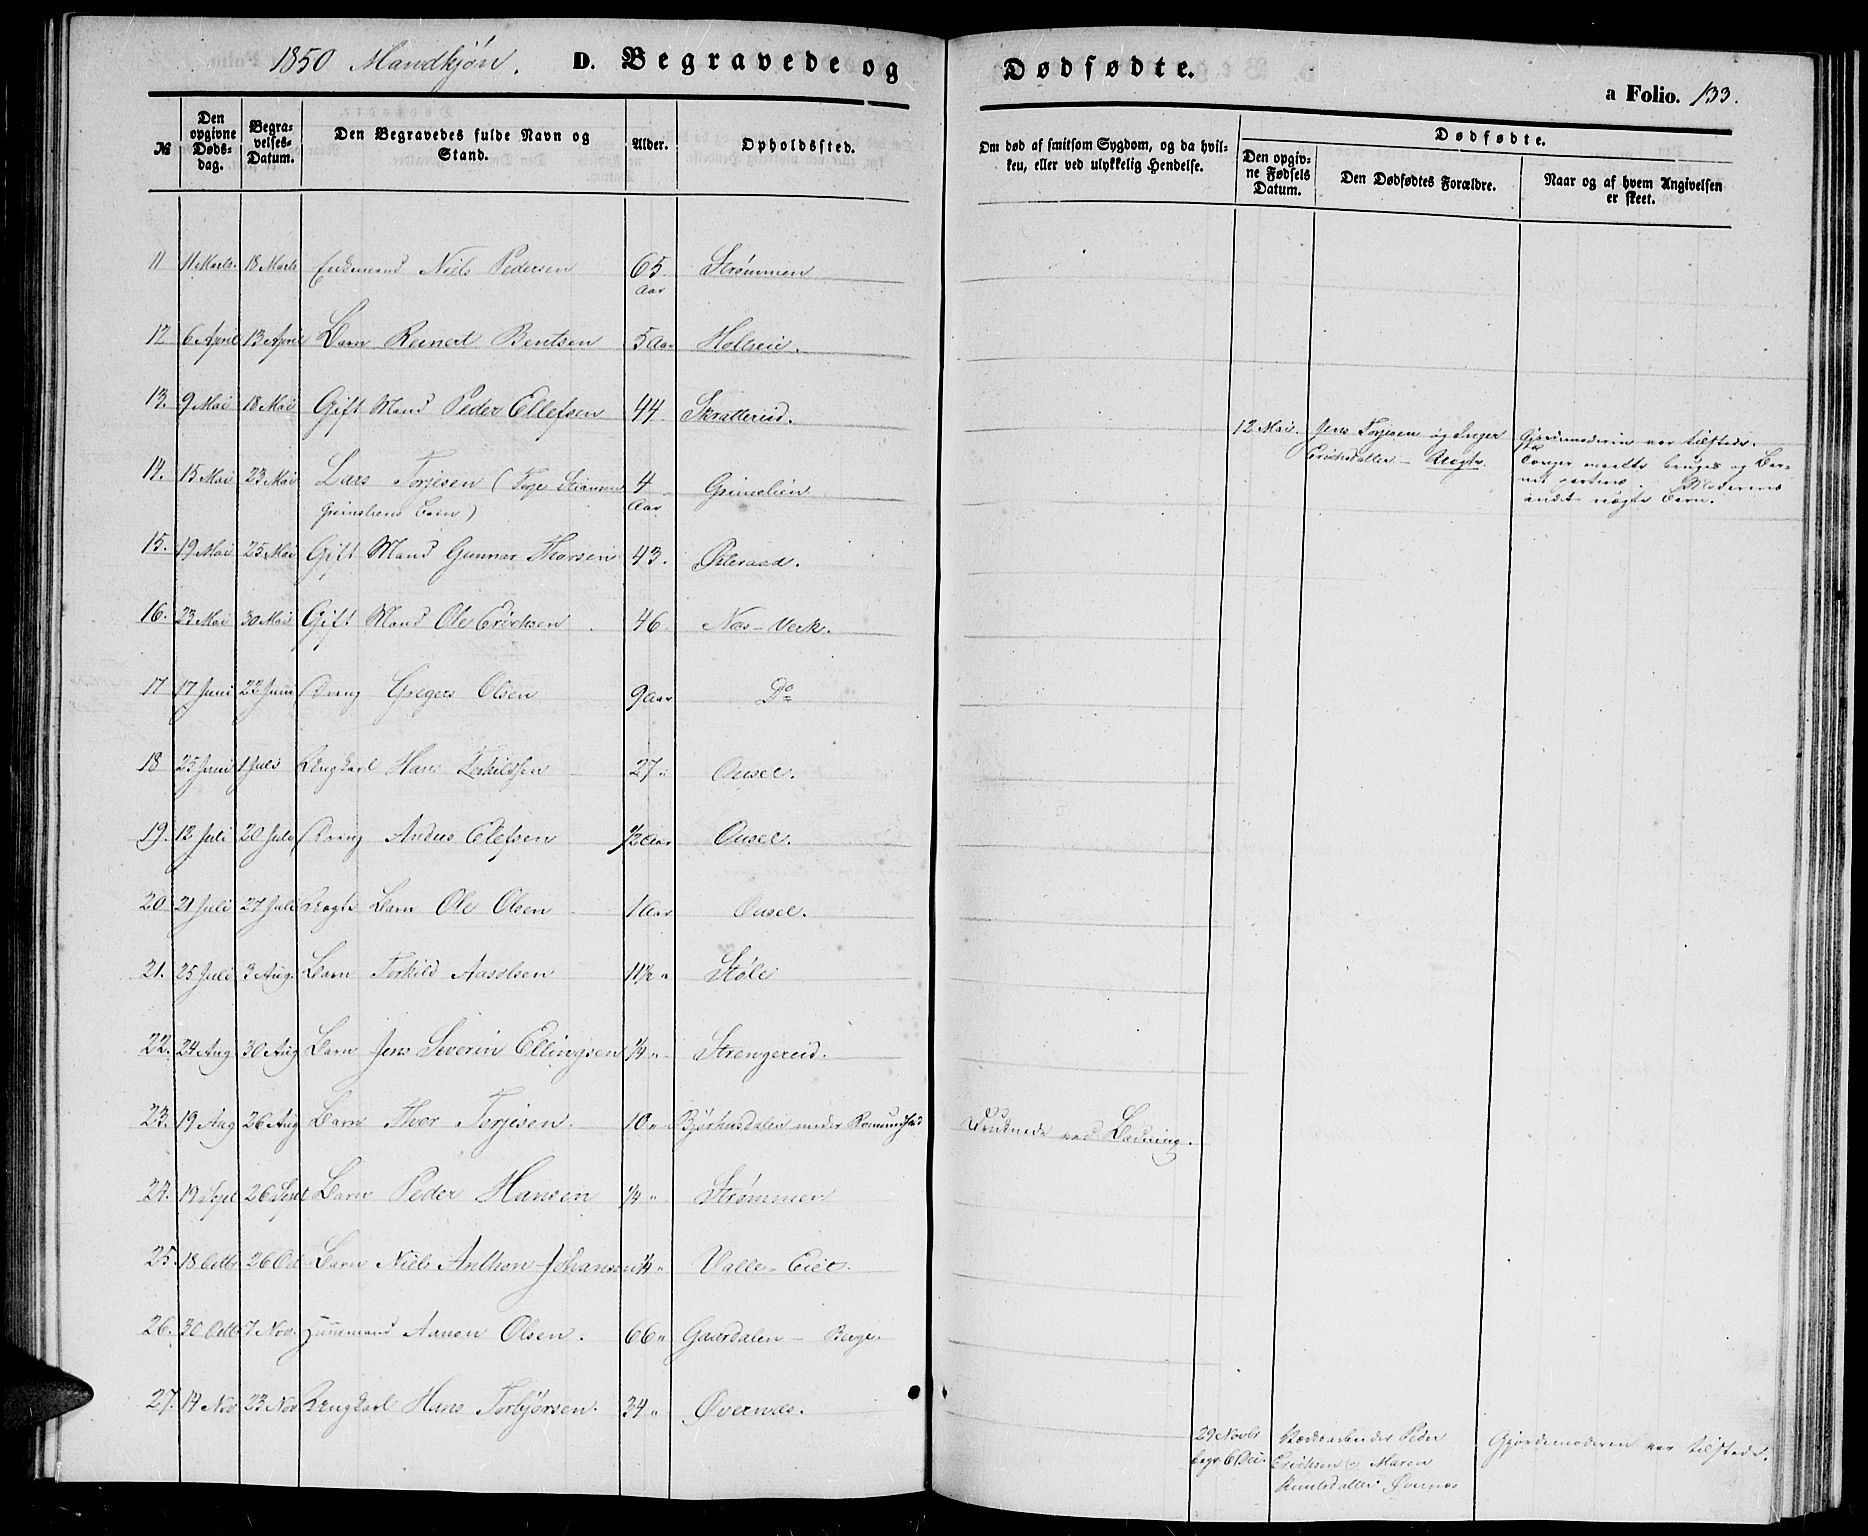 1850 Mandkjøn. D. Begravede og Dødfødte.
a Folio. 133.
№ | Den opgivne Døds-dag. | Begra-velses-Datum. | Den Begravedes fulde Navn og Stand. | Alder. | Opholdssted. | Om død af smitsom Sygdom, og da hvil-ken, eller ved ulykkelig Hendelse. | Dødfødte. | Den opgiv-ne Fødsels Datum. | Den Dødfødtes Forældre. | Naar og af hvem Angivelsen er skeet.
11 11 Marts. 18 Marts Enkemand Niels Pedersen 65 Aar Strømmen
12 6 April 13 April Barn Reinert Bentsen 5 Aar
13. 9 Mai 18 Mai Gift Mand Peder Ellefsen 44 Skrattereid.
12 Mai. Jens Torjesen og Inger
Erichsdatter
Gjordemoderen var tilstede.
14. 15 Mai 23 Mai Lars Torjesen (Torje 4 Aar Grimelien
Barn)
15. 19 Mai 25 Mai Gift Mand Gunnar Thorsen 43. Østeraad.
16. 23 Mai 30 Mai Gift Mand Ole Erichsen 46 Næs-Verk.
17 17 Juni 22 Juni Dreng Gregers Olsen 9 Aar Do
18 25 Juni 1 Juli Ungkarl Hans Terkildsen 27 " Ousel.
19. 12 Juli 20 Juli Dreng Anders Elefsen 1/2 Aar Ousel.
20 21 Juli 27 Juli Uægte Barn Ole Olsen 1 Aar Ousel.
21. 25 Juli 3 Aug. Barn Terkild Aasolsen 11 1/2 " Støle
22. 24 Aug 30 Aug Barn Jens Severin Ellingsen 1/4 " Strengereid.
23. 19 Aug 26 Aug Barn Thor Torjesen. 10 " Bjørhusdalen under Romundstad Druknede ved Badning.
24. 19 Sept 26 Sept Barn Peder Hansen 1/4 " Strømmen
25. 18 Octbr 26 Oct Barn Niels Anthon Johansen 1/4 " Valle-Eiet.
26. 30 Octbr 7 Nov. Huusmand Aanon Olsen. 66 " Gaardalen - Berge.
27. 14 Nov 23 Nov Ungkarl Hans Torbjørsen. 34 " Øvernæs.
29 Novbr
begr. 6 Dec. Peder
Erichsen og Maren
Knudsdatter Øvernæs
Gjordemoderen var tilstede.